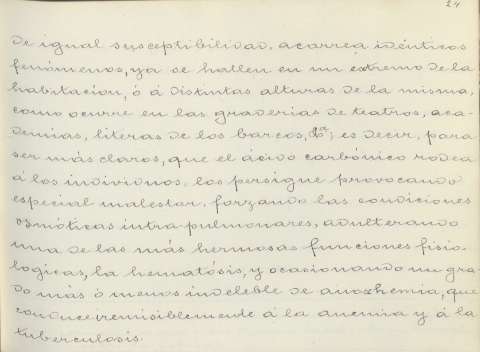 24
de igual susceptibilidad, acarrea idénticos
fenómenos, ya se hallen en un extremo de la
habitación, ó á distintas alturas de la misma,
como ocurre en las graderias de teatros, aca-
demias, literas de los barcos, &ª; es decir, para
ser más claros, que el ácido carbónico rodea
á los individuos, los persigue provocando
especial malestar, forzando las condiciones
osmóticas intra-pulmonares, adulterando
una de las más hermosas funciones fisio-
logicas, la hematósis, y ocasionando un gra-
do más ó menos indeleble de anoxhemia, que
conduce remisiblemente á la anemia y á la
tuberculosis.